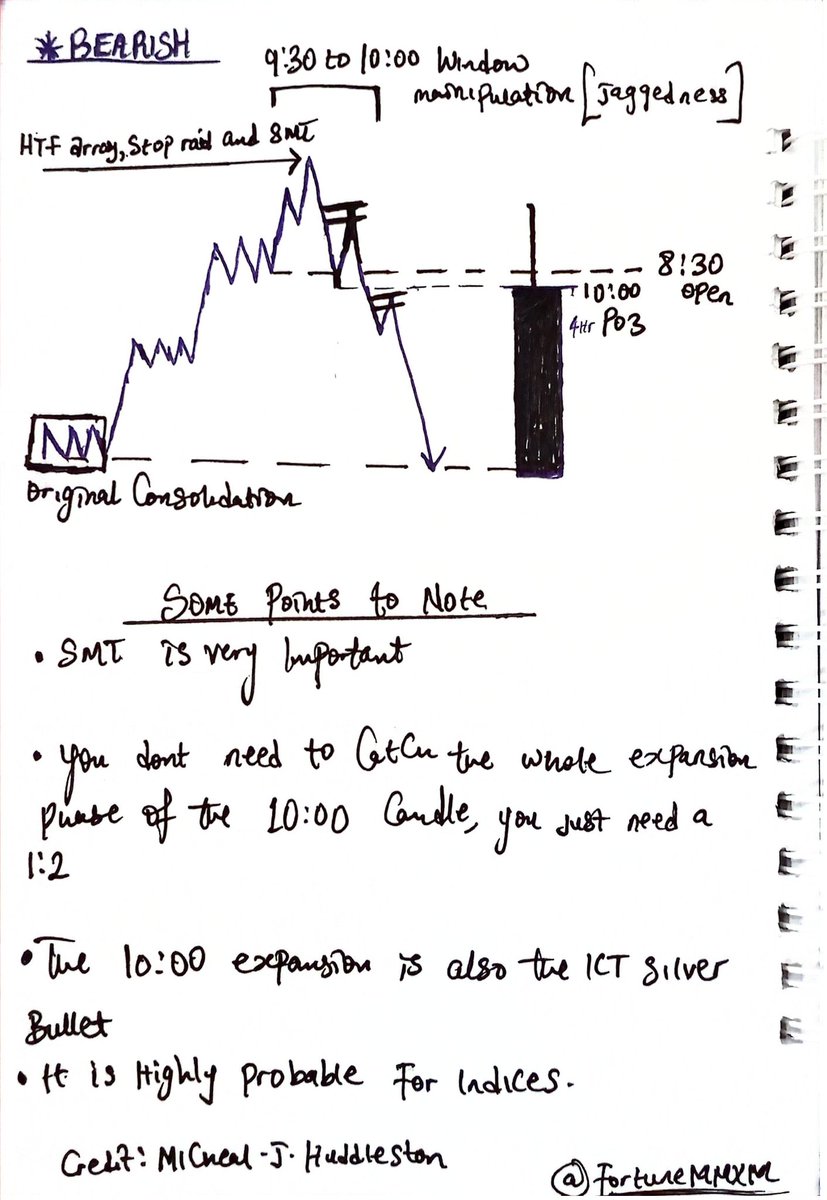 * BEARISH
9:30 to 10:00 Window
manipulation [Jaggedness]
HTF array, Stop raid and SMT
8:30
open
10:00
4Hr PO3
Original Consolidation
Some Points to Note
• SMT is very Important
• You dont need to Catch the whole expansion
phase of the 10:00 Candle, you just need a
1:2
• The 10:00 expansion is also the ICT Silver
Bullet
• It is Highly Probable For Indices.
Credit: Micheal-J-Huddleston
@FortuneMMXM